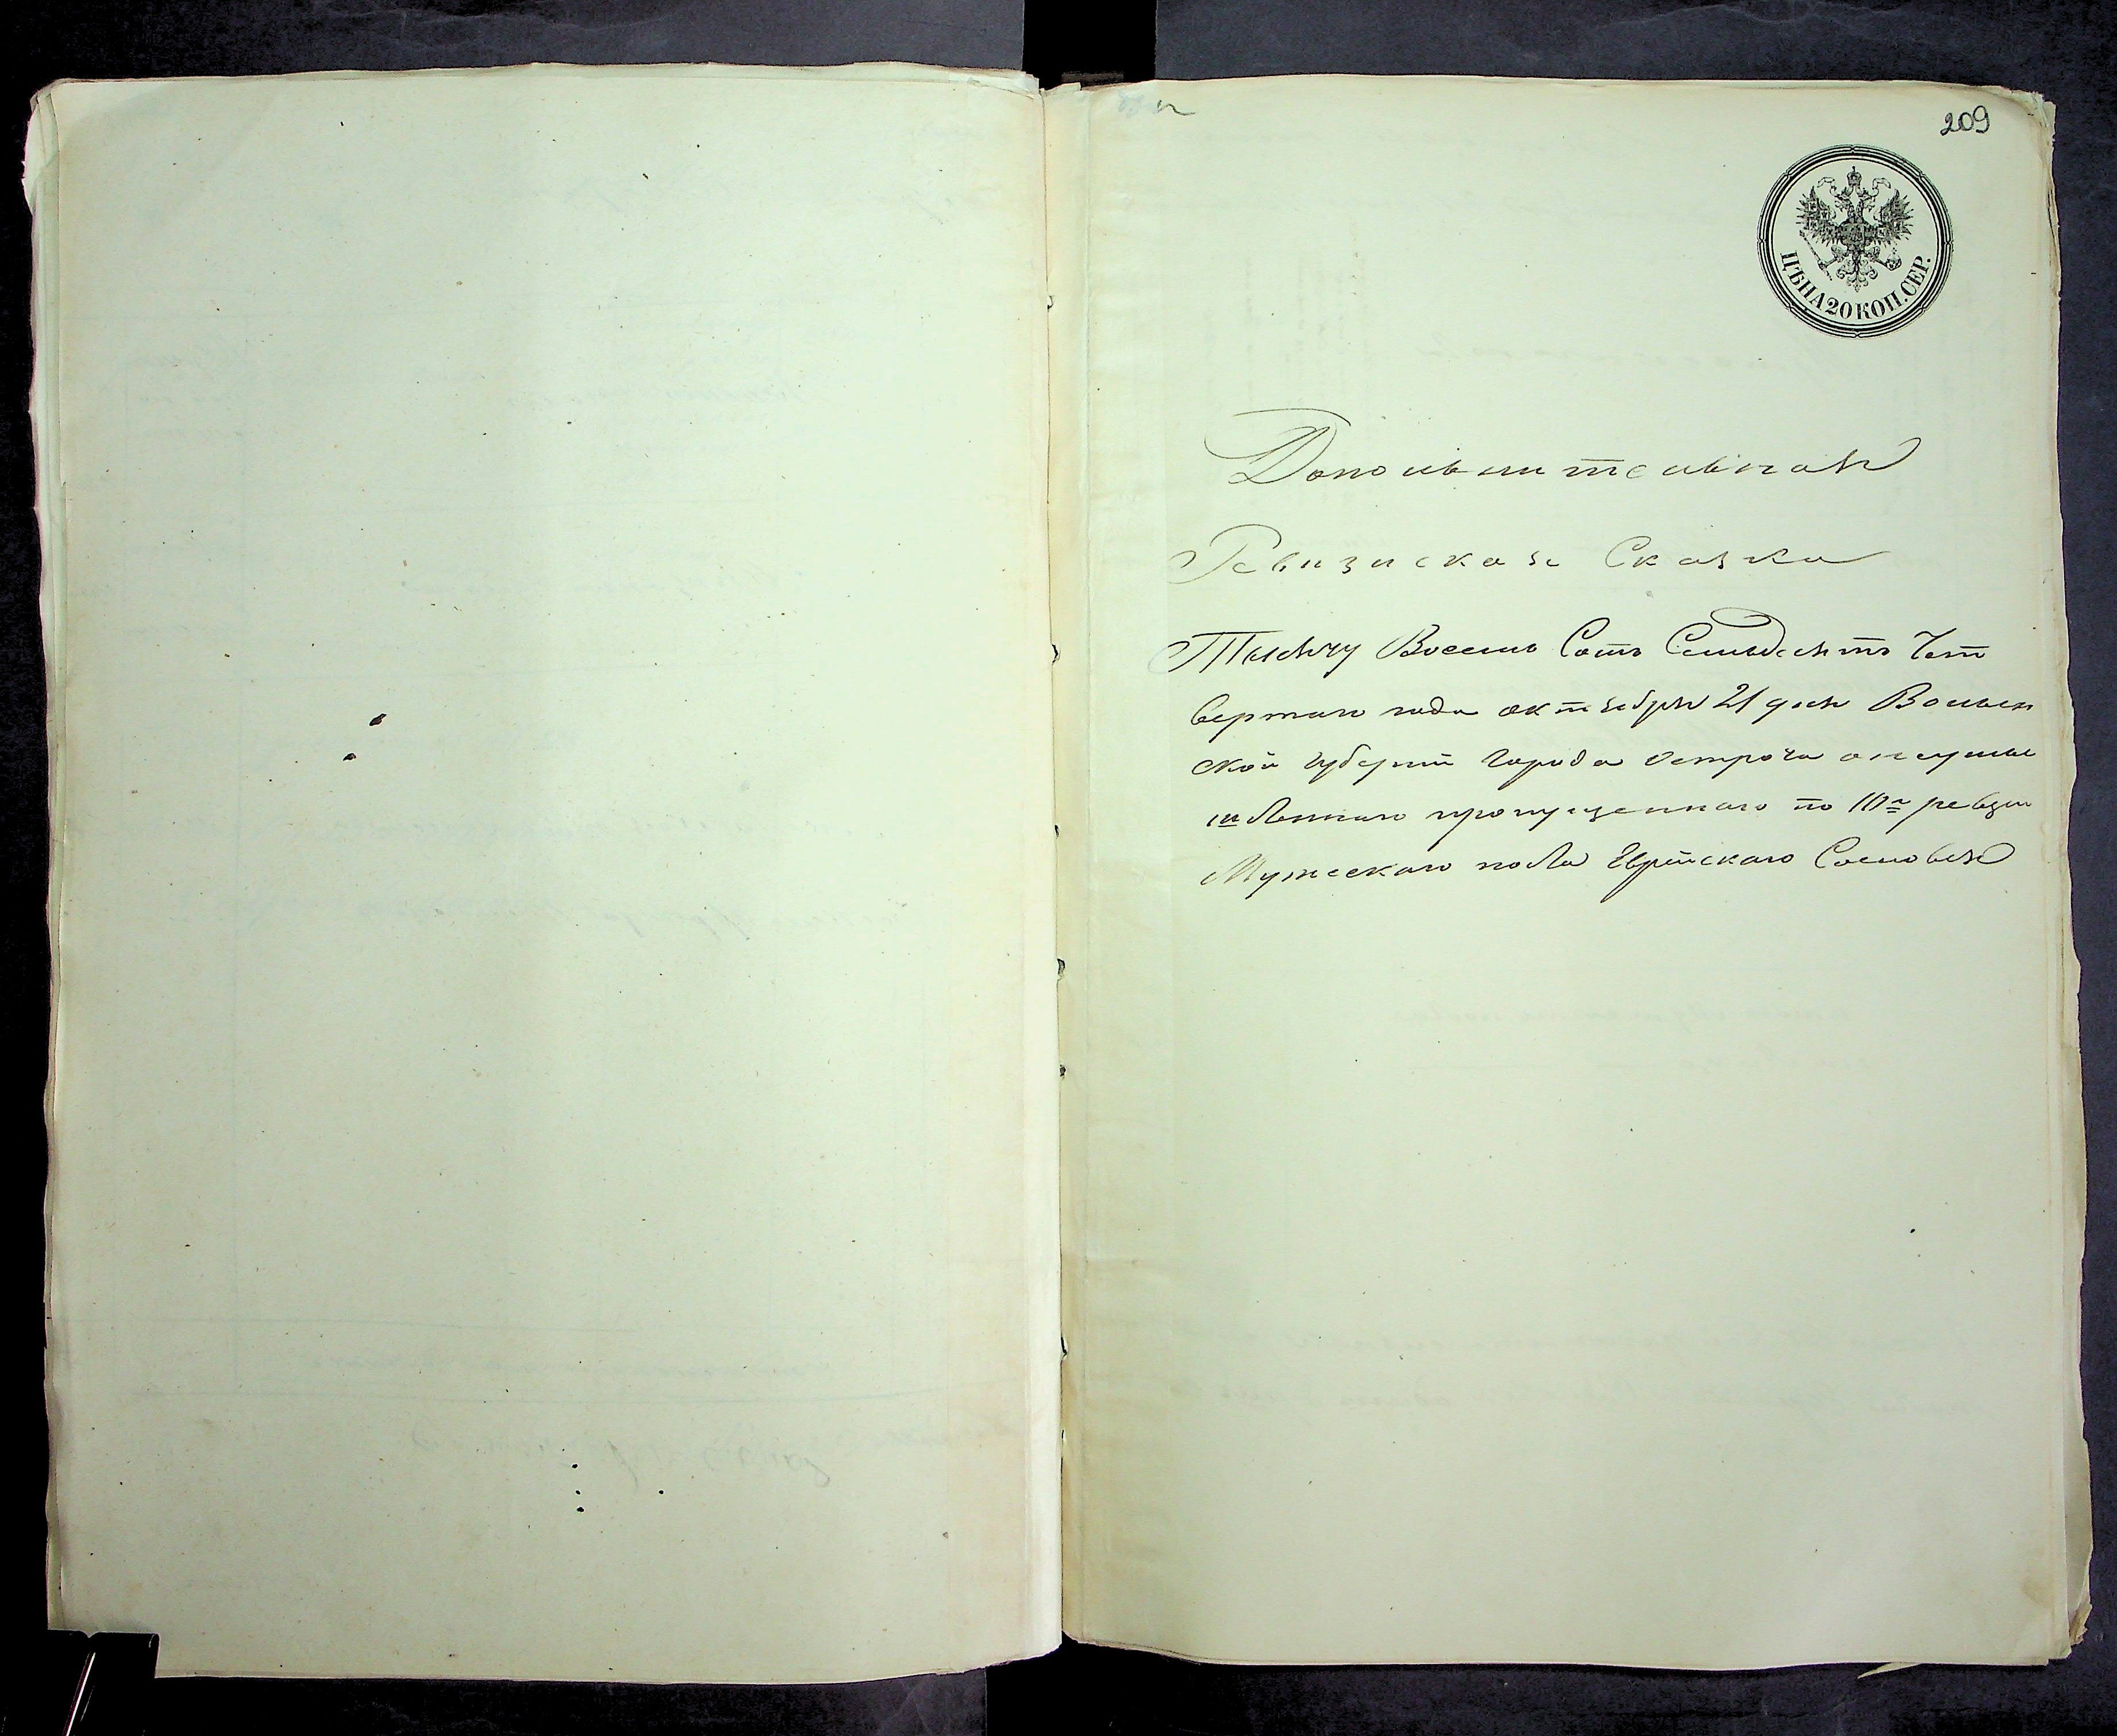 209
ЦѢНА 20 КОП. СЕР.
Дополнительная
Ревизская Сказка
Тысячу Восемь Сотъ Семьдесятъ Чет
вертаго года октября 21 дня Волын
ской губерніи города Острога
пропущеннаго по 10й ревизіи
Мужескаго пола Еврейскаго Сословія